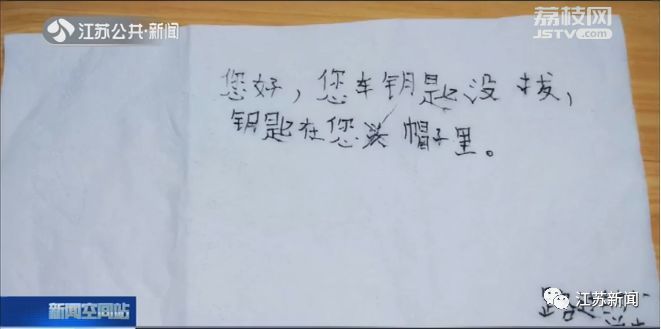 江苏公共·新闻
荔枝网
JSTV.com
您好，您车钥匙没拔，
钥匙在您头帽子里。
新闻空间站
江苏新闻